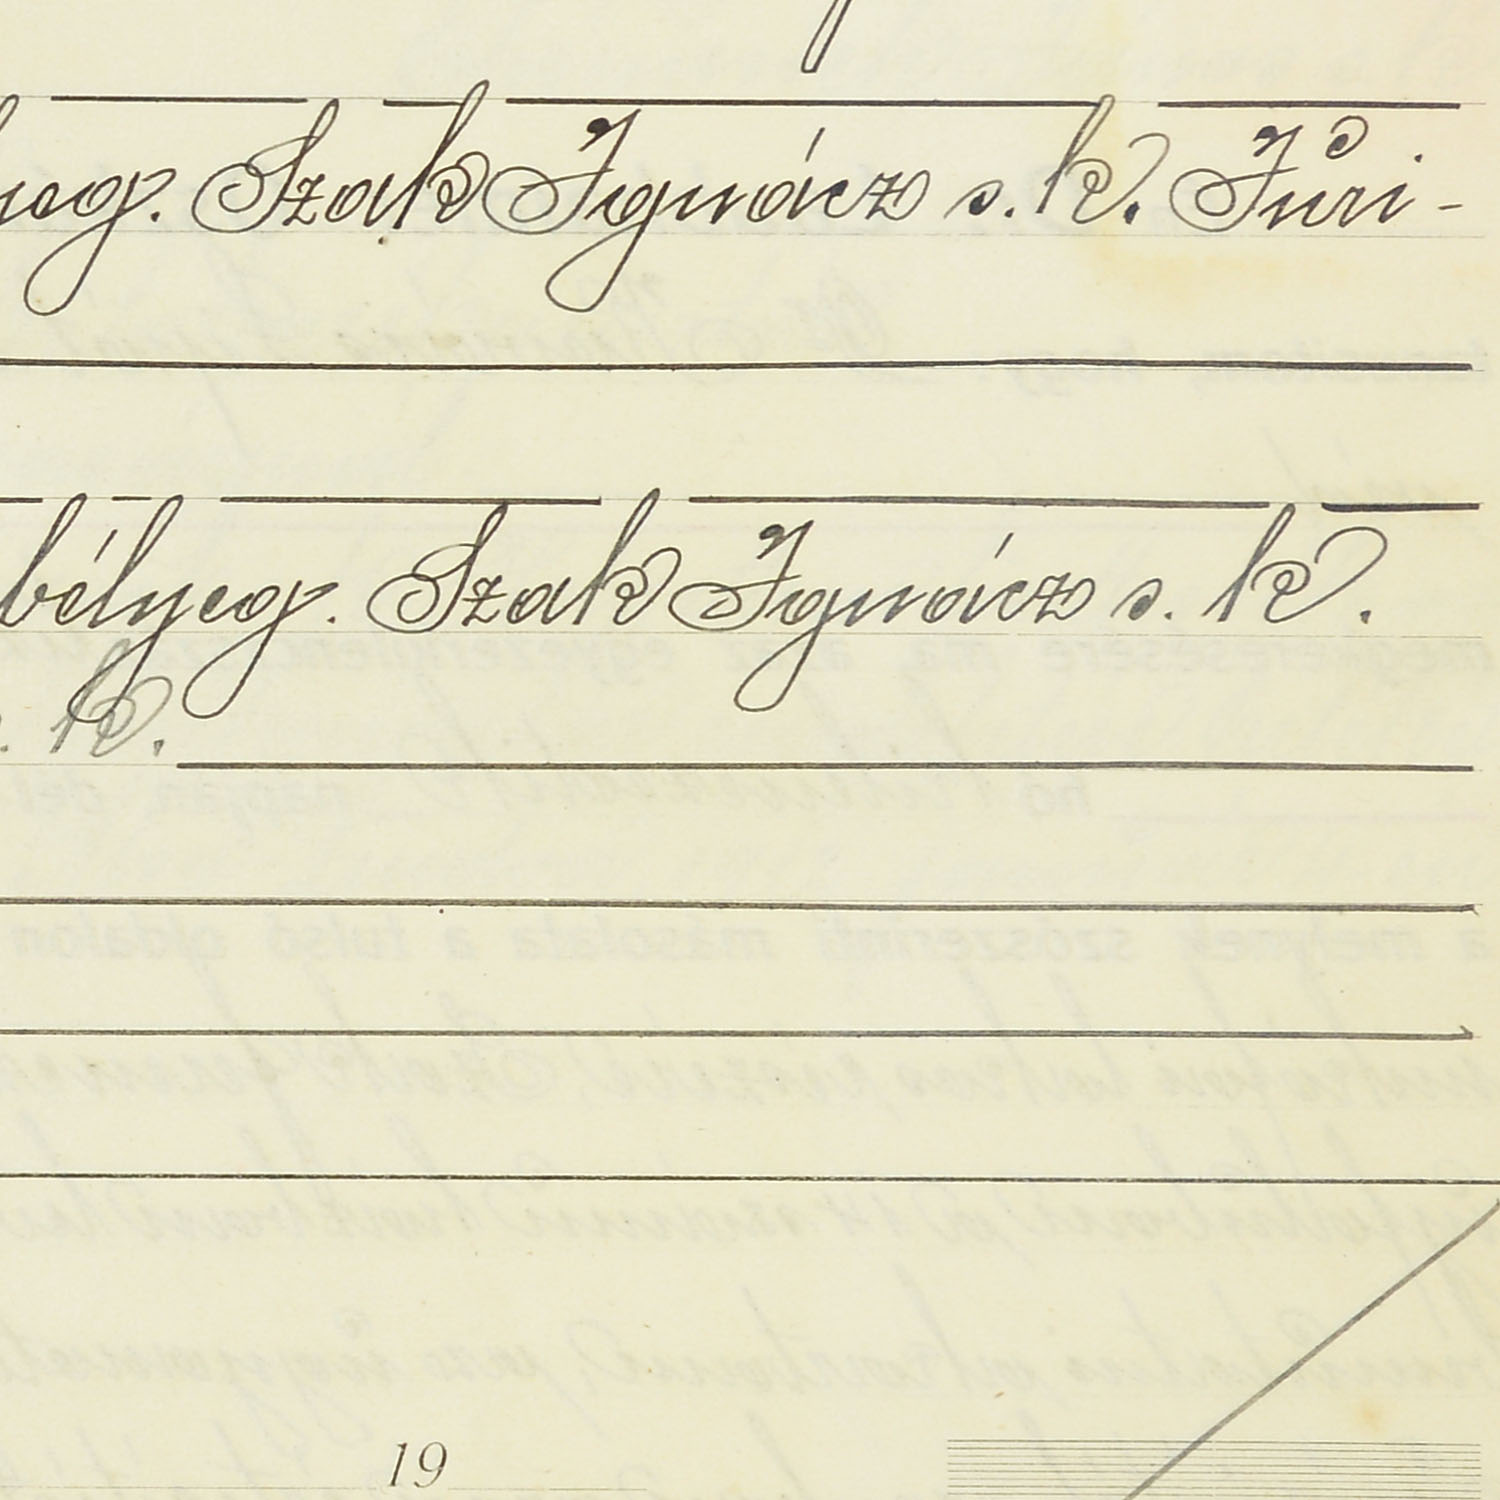 yeg. Szak Ignácz s. k. Juri-
bélyeg. Szak Ignácz s. k.
. k.
19